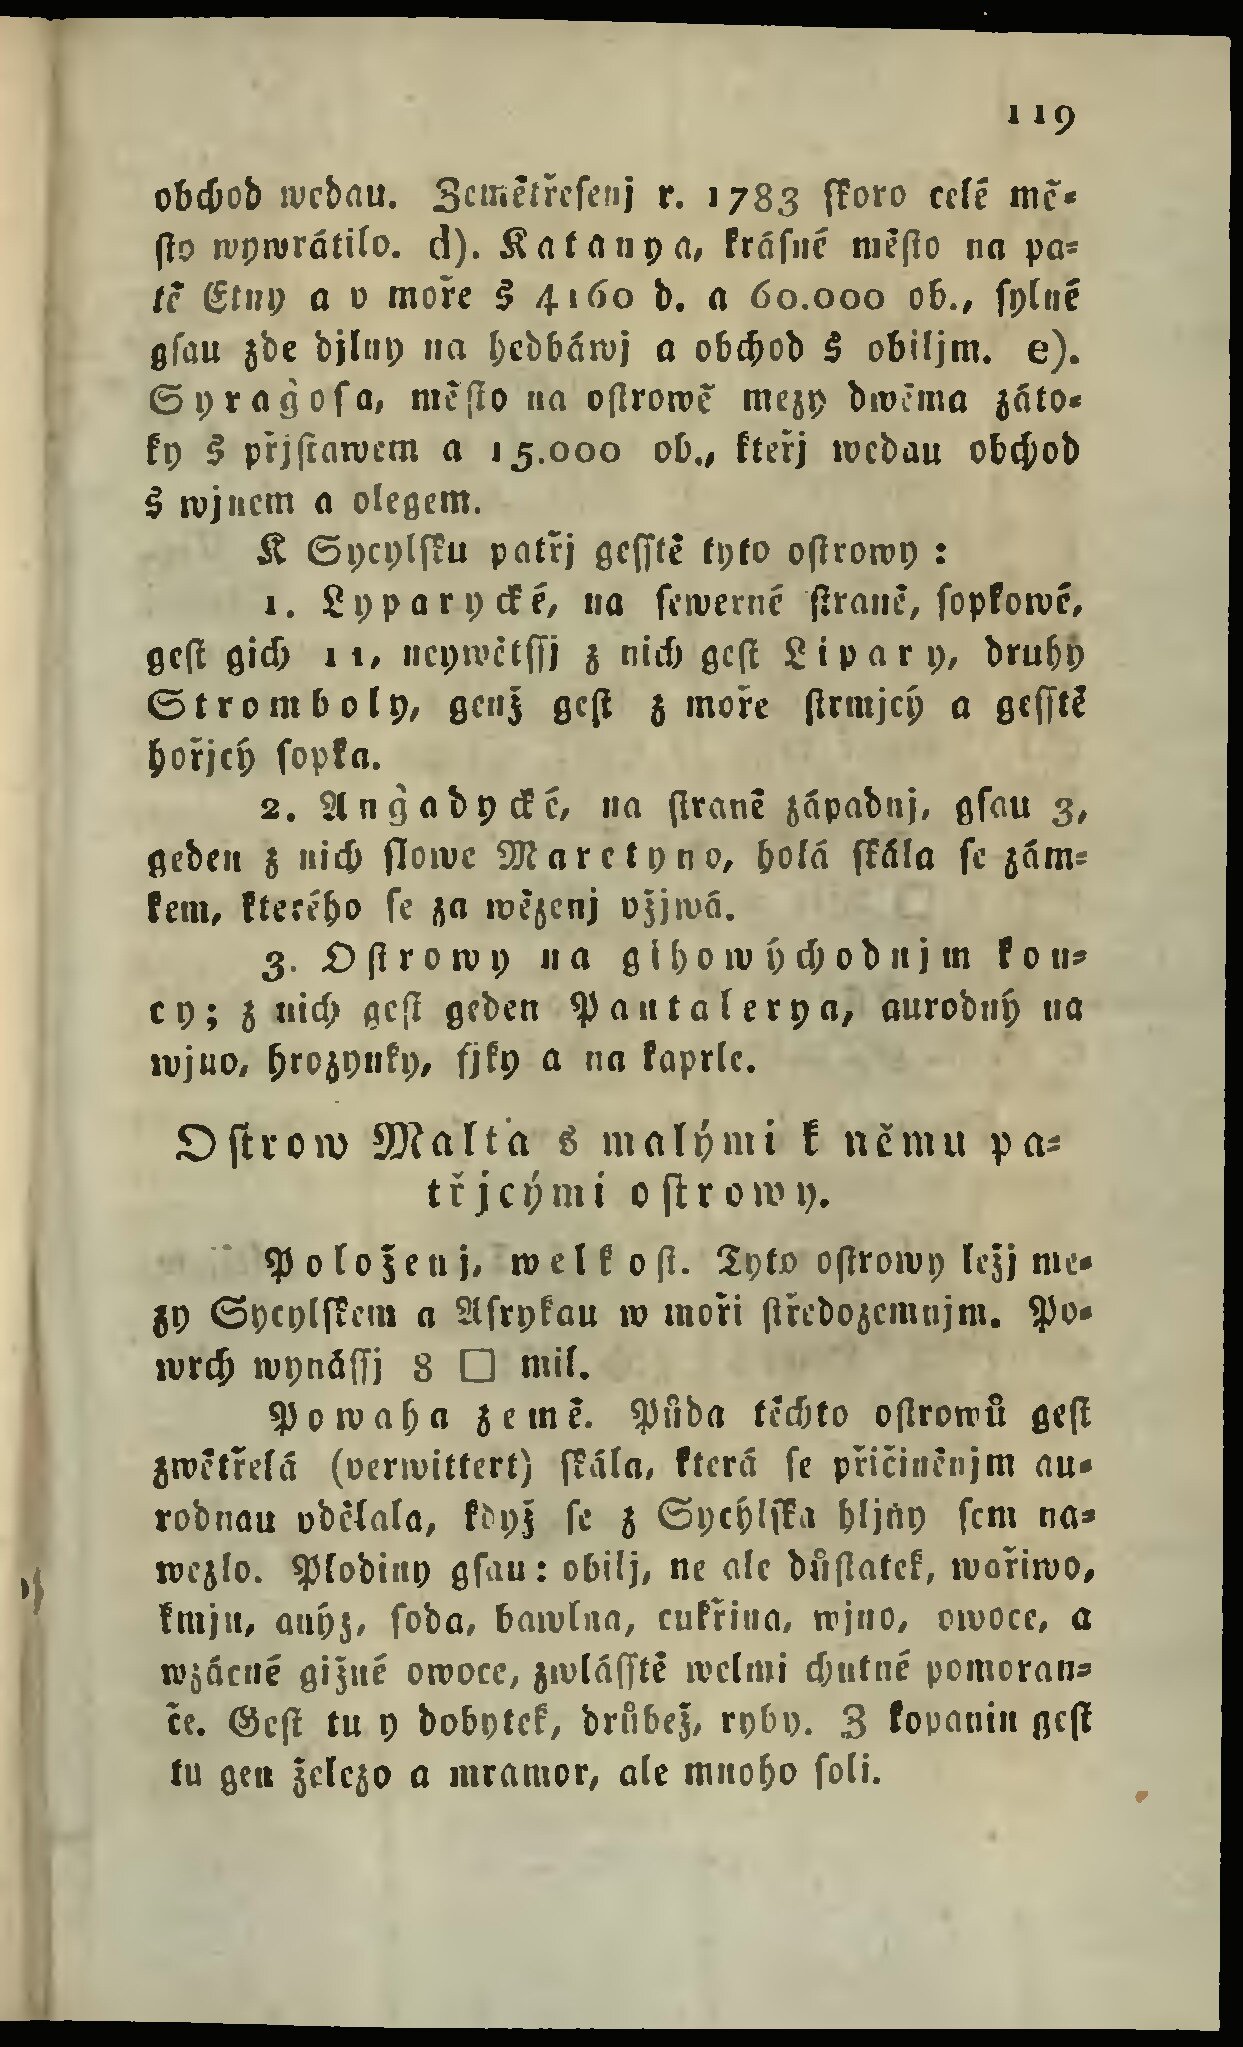 119
obchod wedau. Zemětřesenj r. 1783 skoro celé mě-
sto wywrátilo. d). Katanya, krásné město na pa-
tě Etny a v moře s 4160 d. a 60.000 ob., sylné
gsau zde djlny na hedbáwj a obchod s obiljm. e).
Syraġosa, město na ostrowě mezy dwěma záto-
ky s přjstawem a 15.000 ob., kteřj wedau obchod
s wjnem a olegem.
K Sycylsku patřj gesstě tyto ostrowy :
1. Lyparycké, na sewerné straně, sopkowé,
gest gich 11, neywětssj z nich gest Lipary, druhý
Stromboly, genž gest z moře strmjcý a gesstě
hořjcý sopka.
2. Anġadycké, na straně západnj, gsau 3,
geden z nich slowe Maretyno, holá skála se zám-
kem, kterého se za wězenj vžjwá.
3. Ostrowy na gihowýchodnjm kon-
cy; z nich gest geden Pantalerya, aurodný na
wjno, hrozynky, fjky a na kaprle.
Ostrow Malta s malými k němu pa-
třjcými ostrowy.
Položenj, welkost. Tyto ostrowy ležj me-
zy Sycylskem a Afrykau w moři středozemnjm. Po-
wrch wynássj 8 □ mil.
Powaha země. Půda těchto ostrowů gest
zwětřelá (verwittert) skála, která se přičiněnjm au-
rodnau vdělala, když se z Sycýlska hljny sem na-
wezlo. Plodiny gsau: obilj, ne ale důstatek, wařiwo,
kmjn, anýz, soda, bawlna, cukřina, wjno, owoce, a
wzácné gižné owoce, zwlásstě welmi chutné pomoran-
če. Gest tu y dobytek, drůbež, ryby. Z kopanin gest
tu gen železo a mramor, ale mnoho soli.